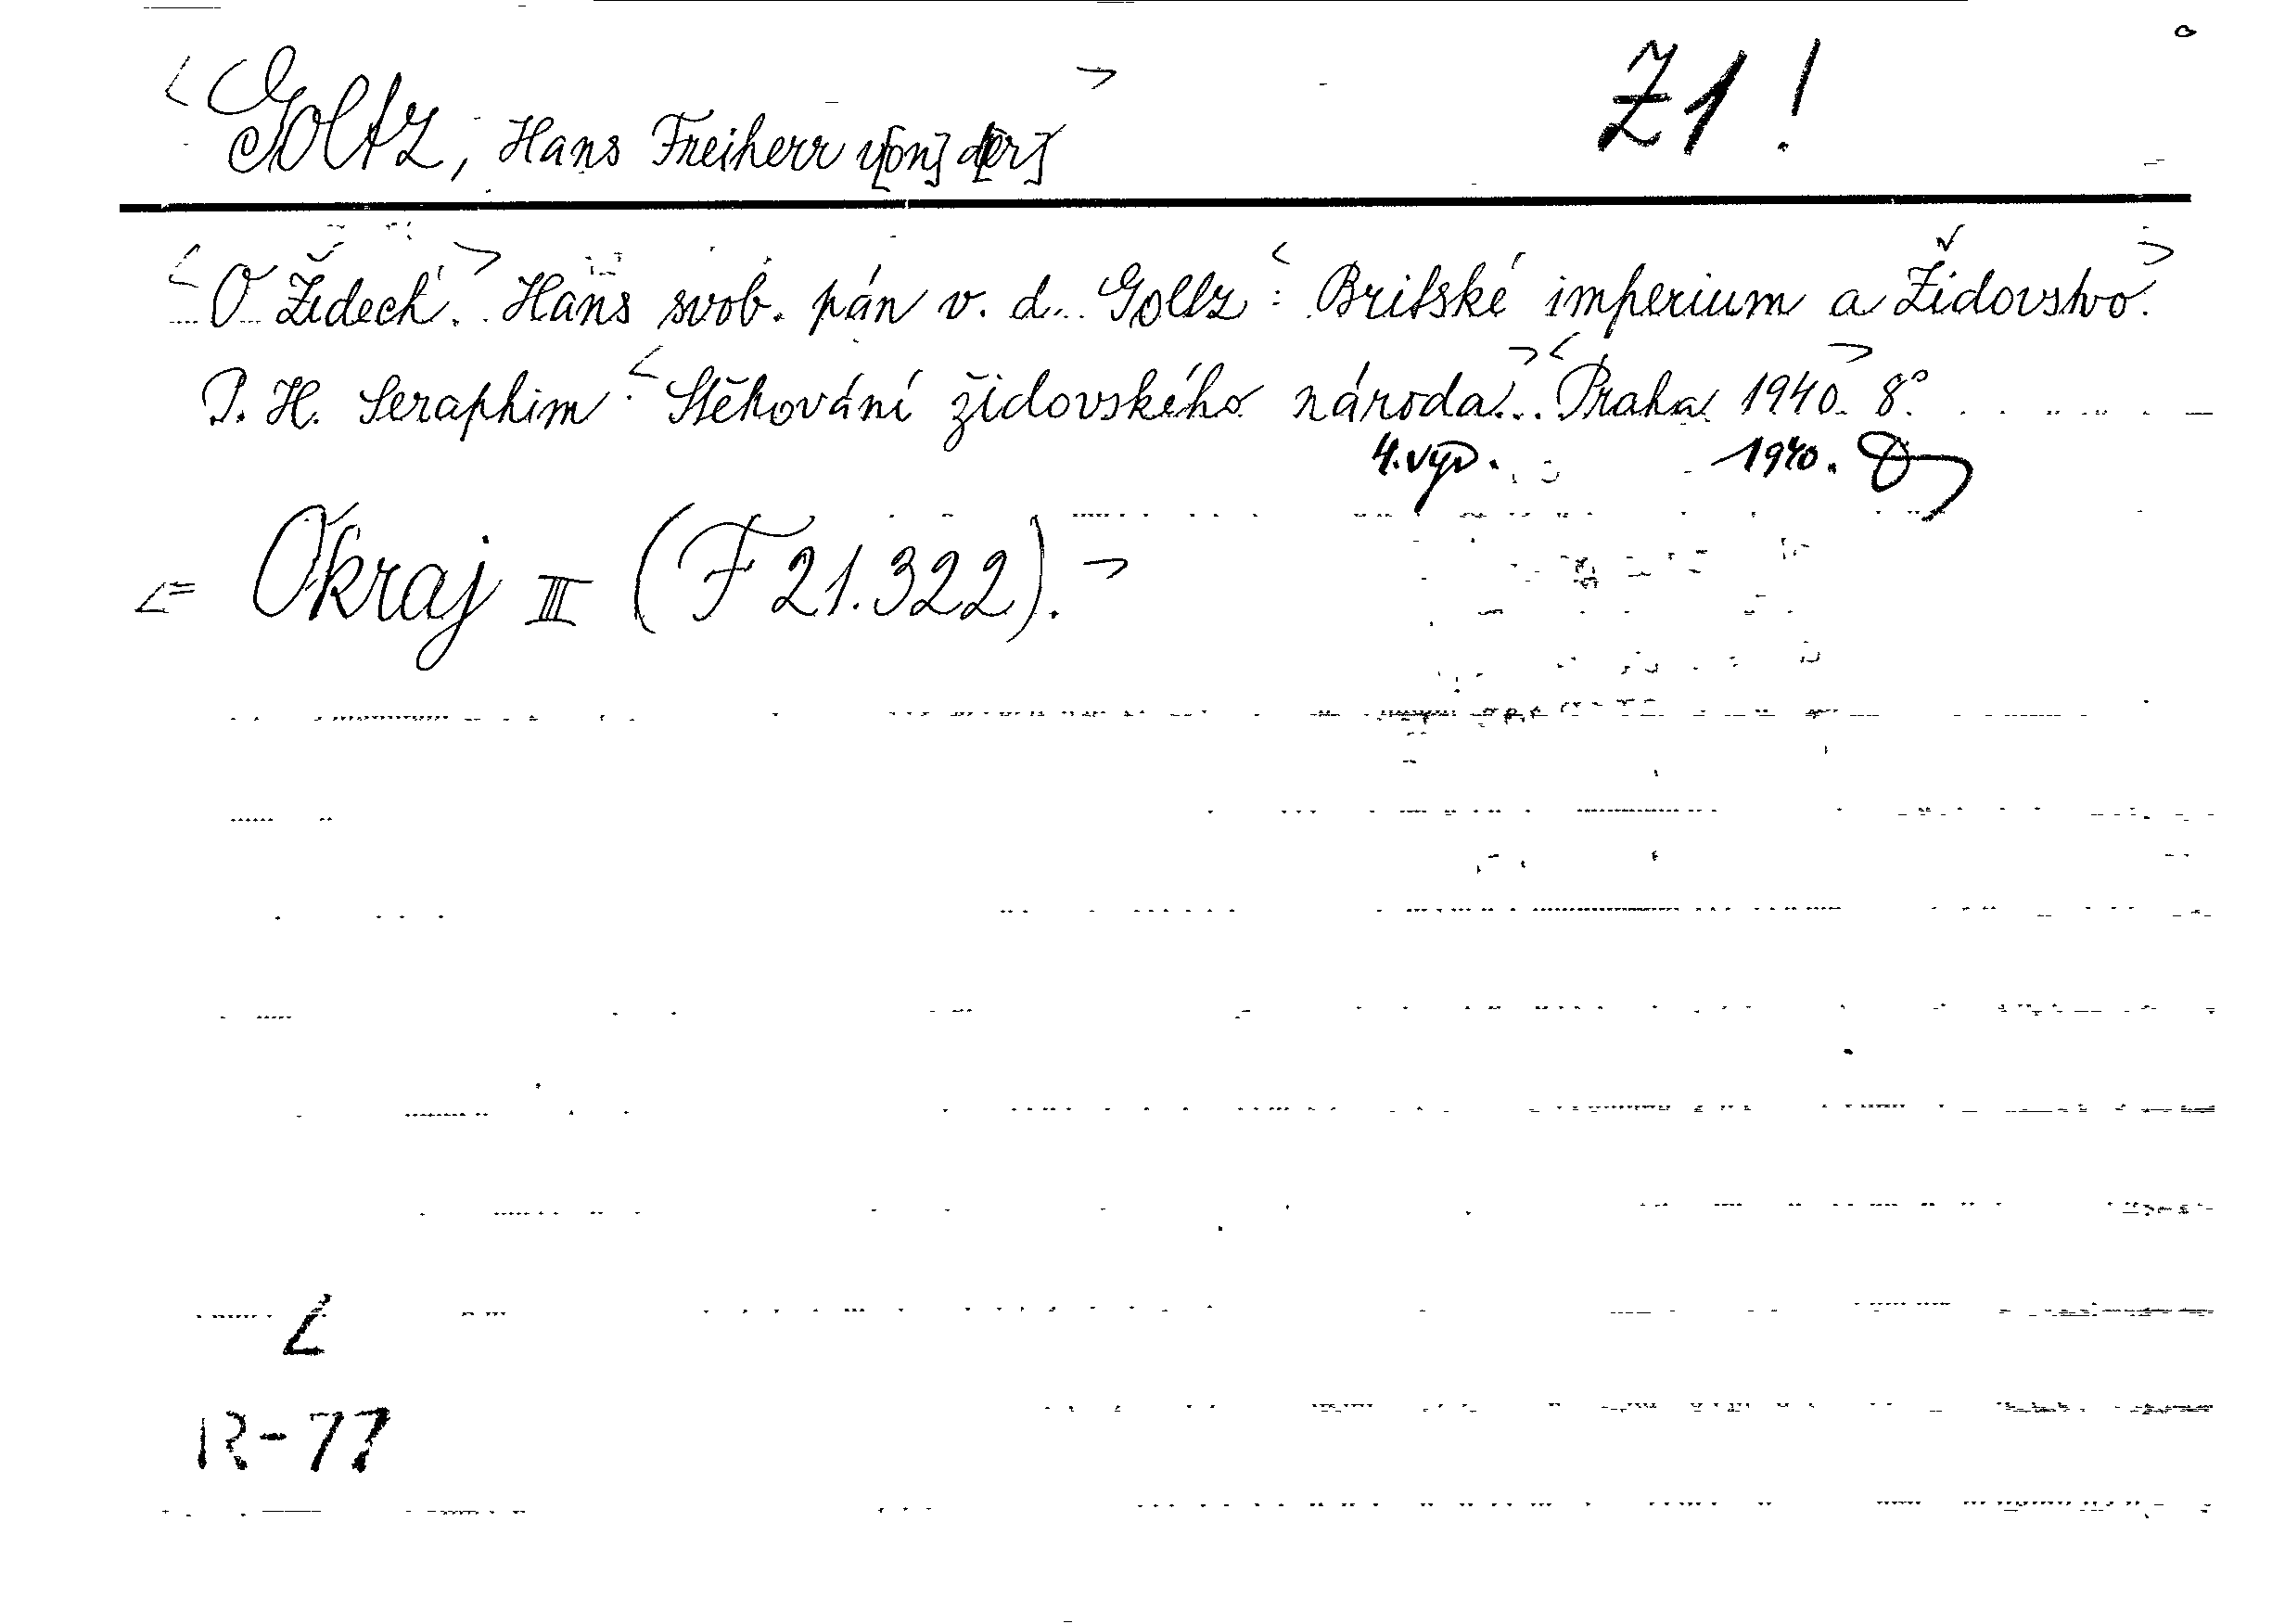 <Goltz, Hans Freiherr v[on] d[er]> Z1!
<O Židech.> Hans svob. pán v. d. Goltz: <Britské imperium a Židovstvo.>
P. H. Seraphim: <Stěhování židovského národa.> <Praha> 1940. 8°.
4. vyd. 1940.
<= Okraj III (F 21.322).>
L
R-77